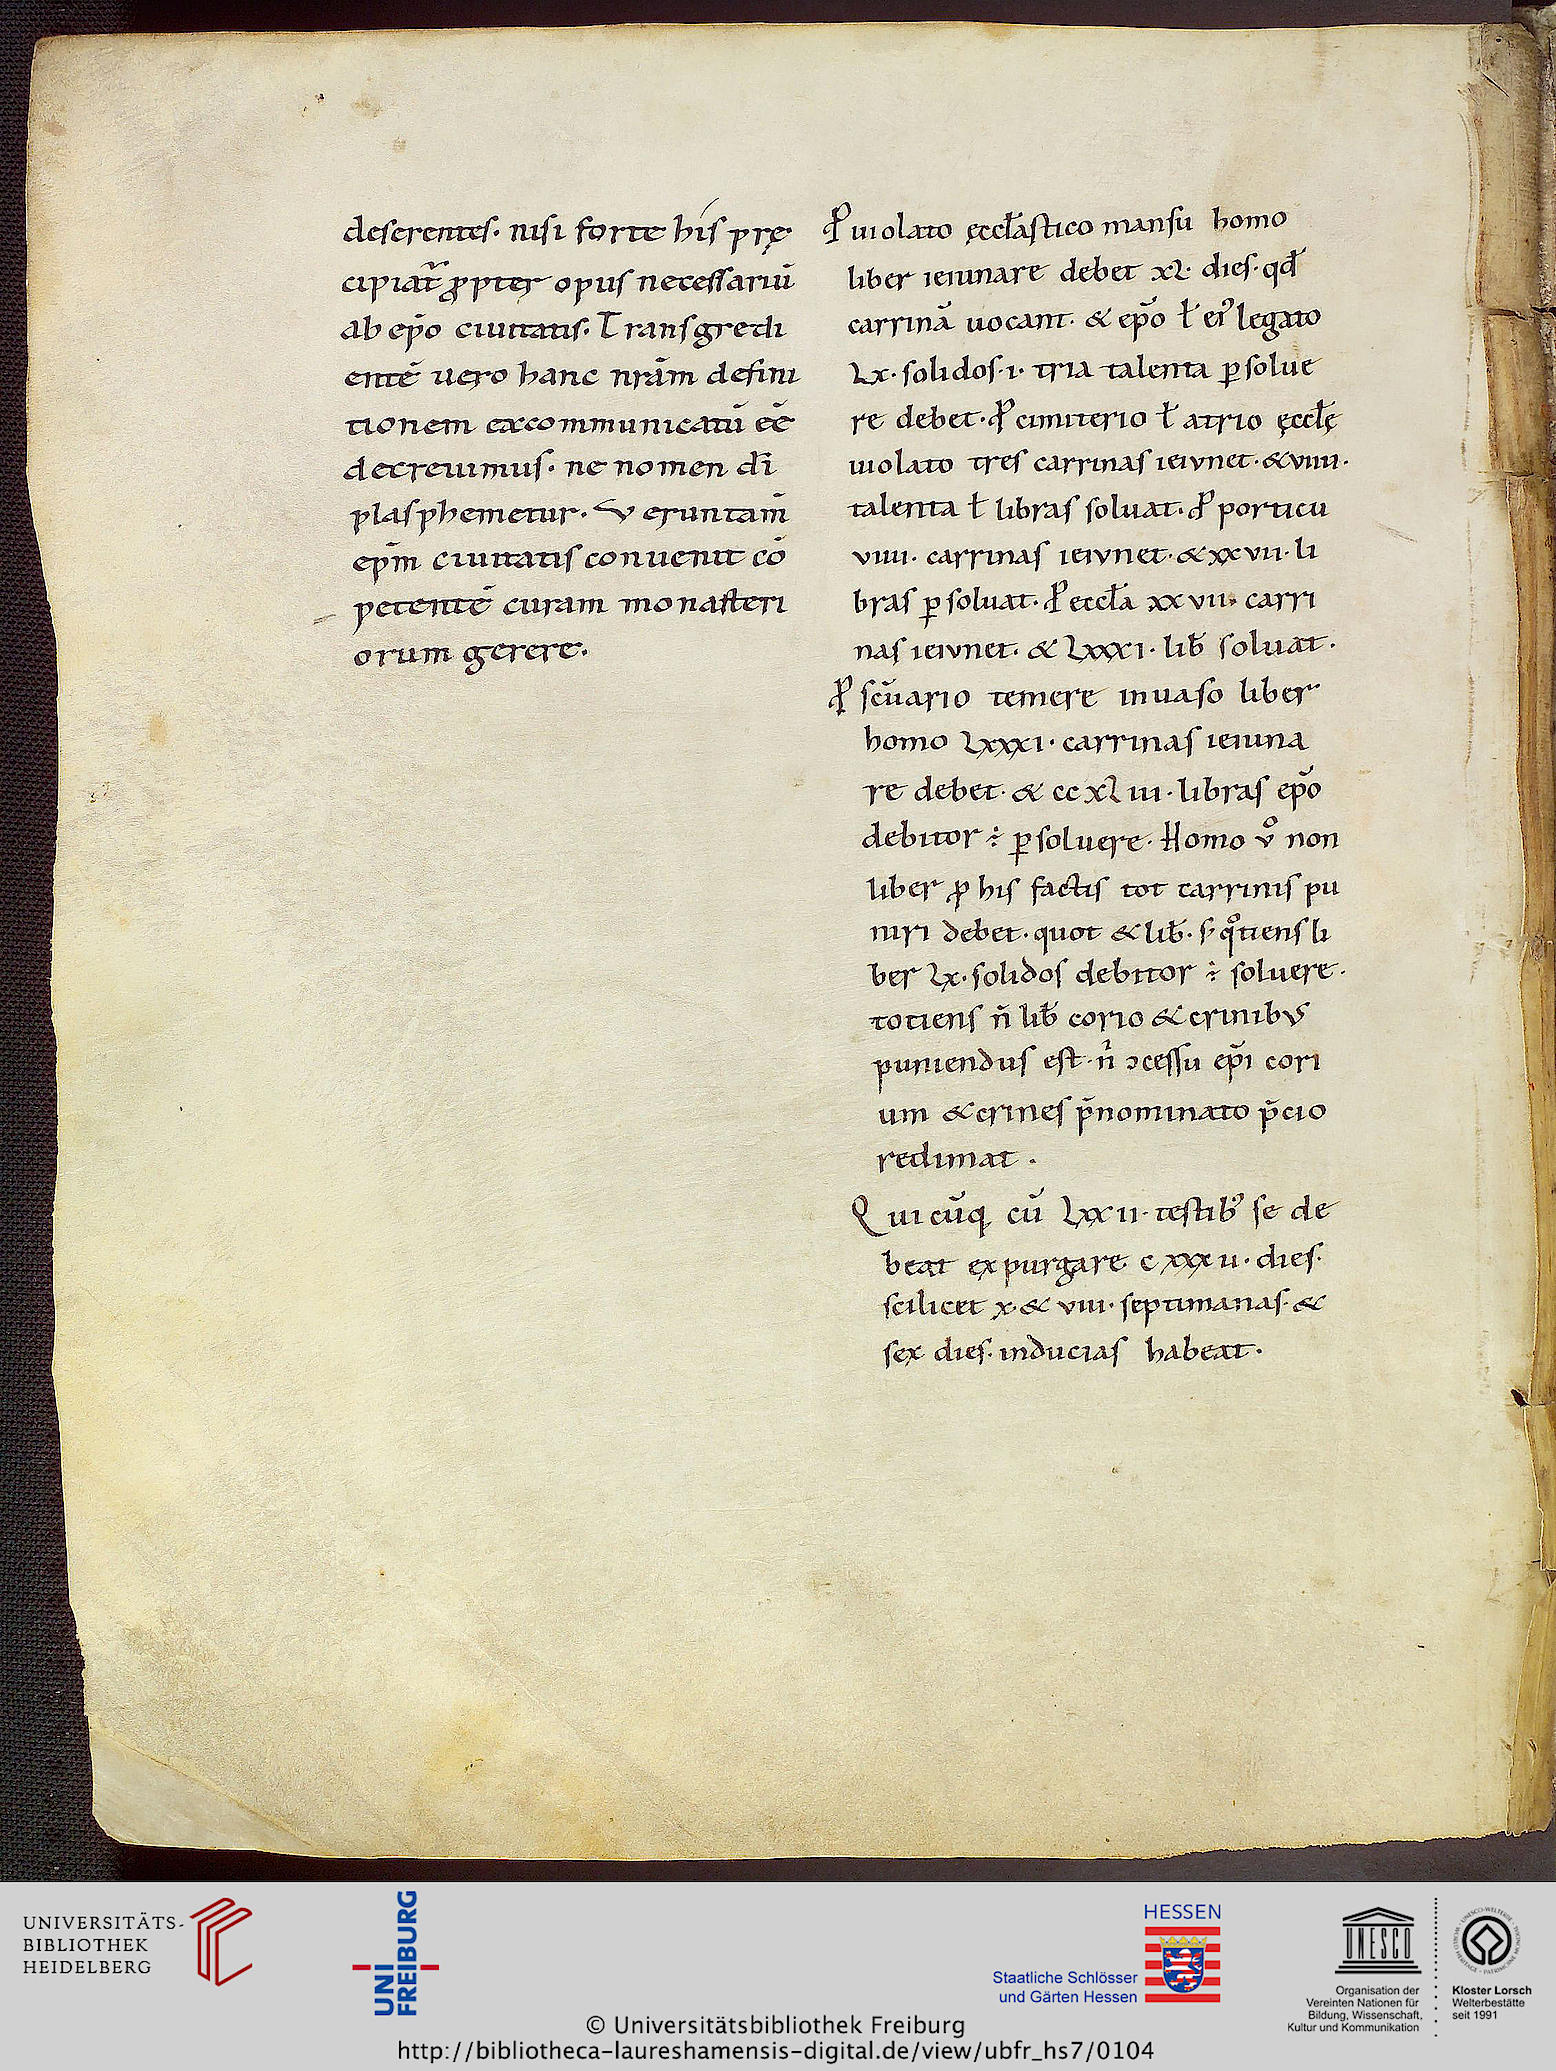 deserentes· nisi forte his prę
cipiat̄ ꝓpter opus necessariū
ab ep̄o ciuitatis· Transgredi
entē uero hanc nr̄am defini
tionem excommunicatū eē
decreuimus· ne nomen dī
plasphemetur· Veruntam̄
ep̄m ciuitatis conuenit cō
petentē curam monasteri
orum gerere·
Ꝓ uiolato ęccl̄astico mansu homo
liber ieiunare debet xl· dies· qđ
carrinā uocant· & ep̄o ł ei' legato
lx· solidos·i· tria talenta ꝑsolue
re debet· Ꝓ cimiterio ł atrio ęccl̄ę
uiolato tres carrinas ieiunet· & viiii·
talenta ł libras soluat· Ꝓ porticu
viiii· carrinas ieiunet· & xxvii· li
bras ꝑsoluat· Ꝓ eccl̄a xxvii· carri
nas ieiunet· & lxxxi· lib̄ soluat·
Ꝓ scūario temere inuaso liber
homo lxxxi· carrinas ieiuna
re debet· & ccxliii· libras ep̄o
debitor ÷ ꝑsoluere· Homo v° non
liber ꝓ his factis tot carrinis pu
niri debet· quot & lib̄· s; q°tiens li
ber lx· solidos debitor ÷ soluere·
totiens n̄ lib̄ corio & crinibus
puniendus est· n̄ ɔcessu ep̄i cori
um & crines p̄nominato p̄cio
redimat·
Quicūq; cū lxxii· testib' se de
beat expurgare cxxxii· dies·
scilicet x· & viii· septimanas· &
sex dies· inducias habeat·
UNIVERSITÄTS-
BIBLIOTHEK
HEIDELBERG
UNI
FREIBURG
HESSEN
Staatliche Schlösser
und Gärten Hessen
UNESCO
Organisation der
Vereinten Nationen für
Bildung, Wissenschaft,
Kultur und Kommunikation
Kloster Lorsch
Welterbestätte
seit 1991
© Universitätsbibliothek Freiburg
http://bibliotheca-laureshamensis-digital.de/view/ubfr_hs7/0104